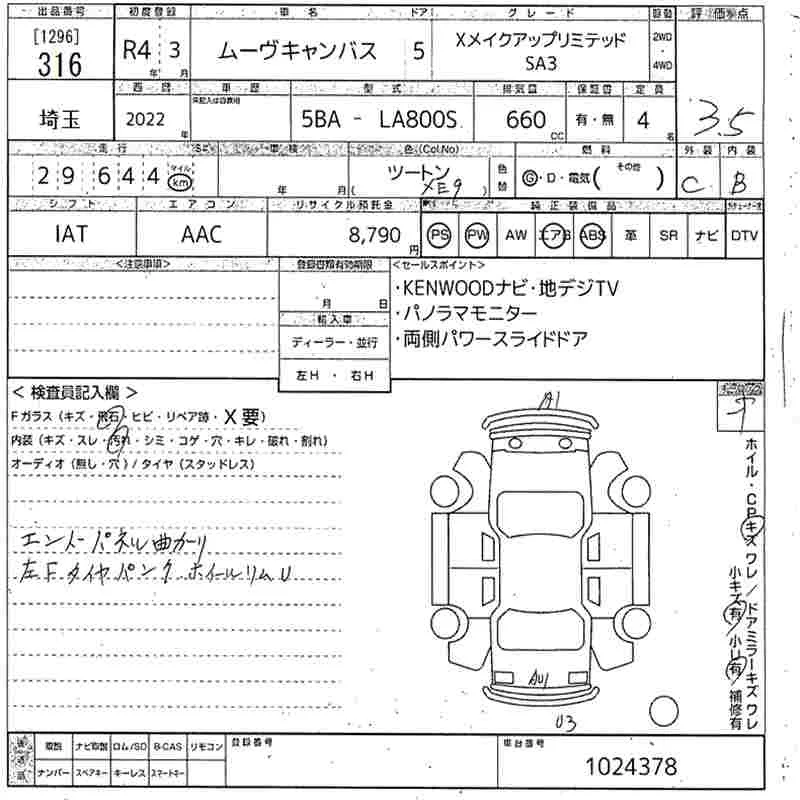 出品番号 初度登録 車名 ドア グレード 駆動 評価点
[1296] 316 R4年 3月 ムーヴキャンバス 5 Xメイクアップリミテッド SA3 2WD・4WD 3.5
西暦 車歴 型式 排気量 保証書 定員
埼玉 2022年 未記入は自家用 5BA - LA800S 660CC 有・無 4名
走行 車検 色(Col,No) 燃料 外装 内装
29,644 マイル km 年 月 ツートン (XE9) 色替 G・D・電気( その他 ) C B
シフト エアコン リサイクル預託金 純正装備品
IAT AAC 8,790円 PS PW AW エアB ABS 革 SR ナビ DTV
<注意事項> 登録書類有効期限 <セールスポイント>
月 日 ・KENWOODナビ・地デジTV
輸入車 ・パノラマモニター
ディーラー・並行 ・両側パワースライドドア
左H・右H
< 検査員記入欄 >
Fガラス(キズ・飛石・ヒビ・リペア跡・X要)
内装(キズ・スレ・汚れ・シミ・コゲ・穴・キレ・破れ・割れ)
オーディオ(無し・穴)/タイヤ(スタッドレス)
エンドパネル曲がり
左Fタイヤパンク ホイールリムU
A1
AU1
U3
ホイル・CPキズワレ/ドアミラーキズワレ
小キズ有/小U有 補修有
後送品 取説 ナビ取説 ロム/SD B-CAS リモコン 登録番号 車台番号
ナンバー スペアキー キーレス スマートキー 1024378